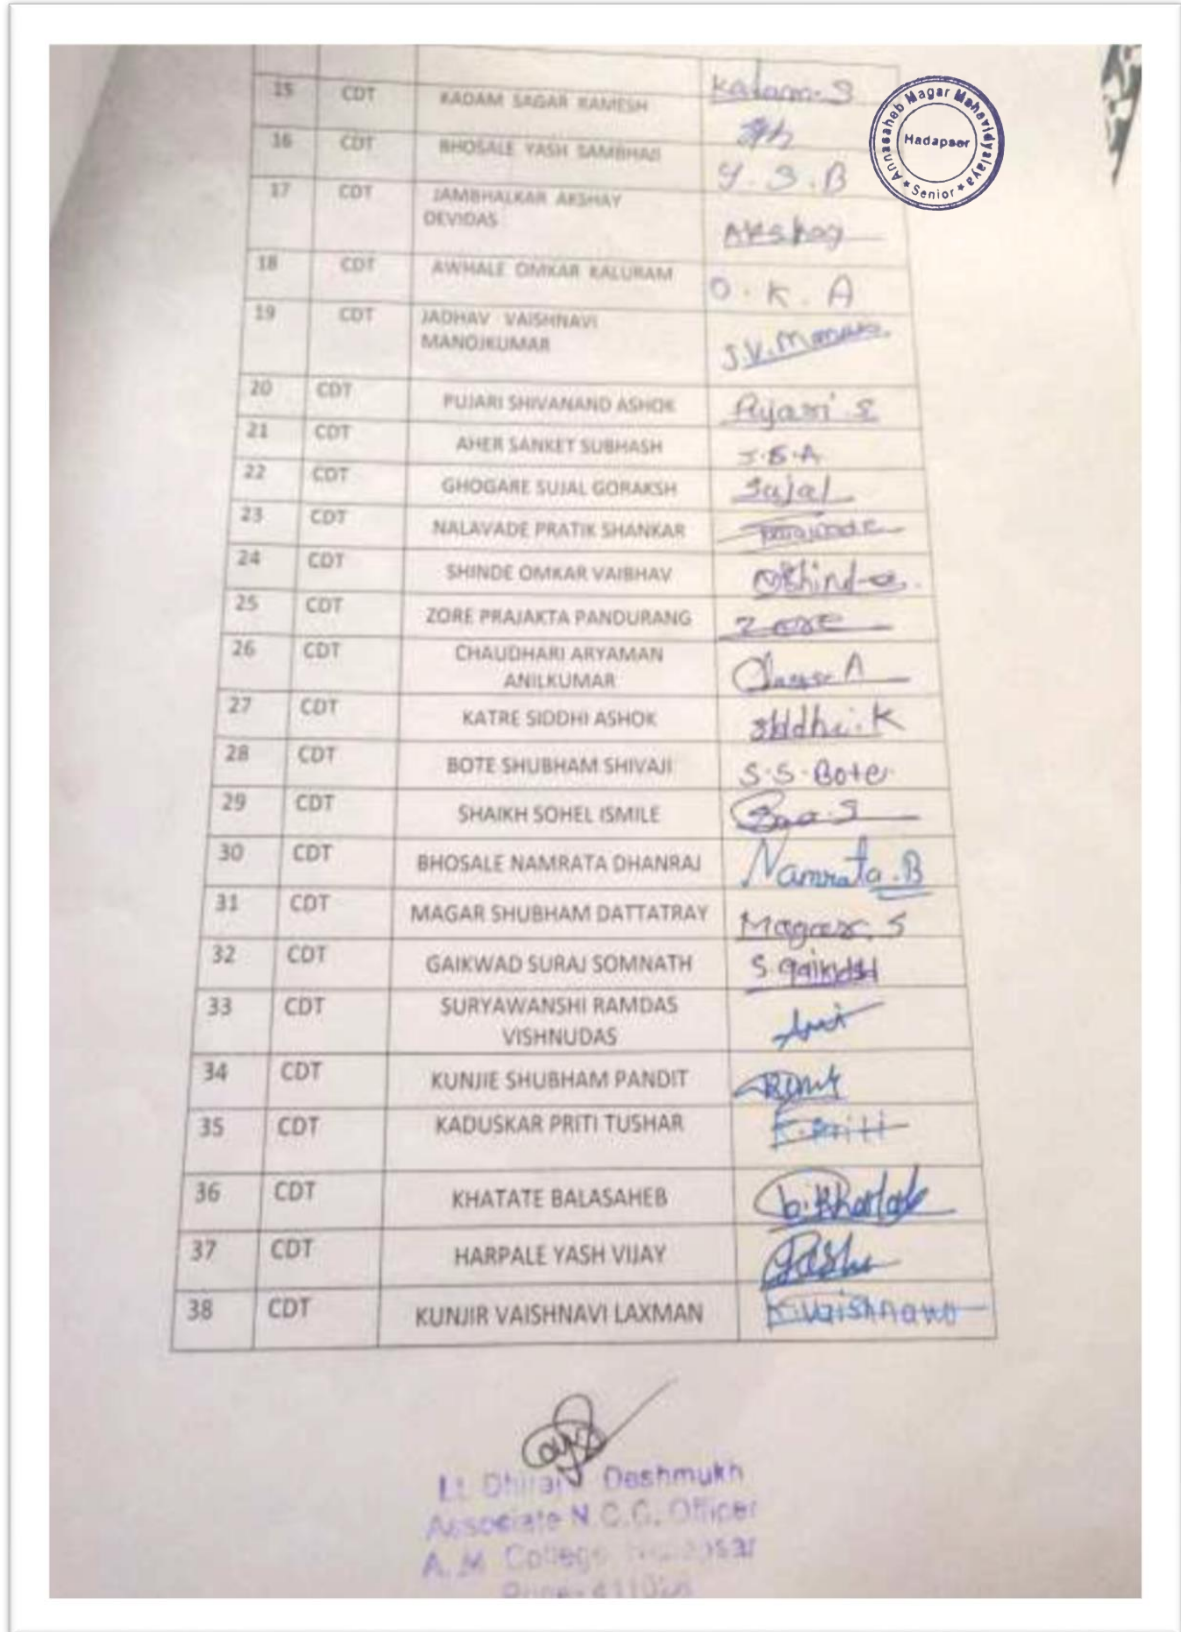 Annasaheb Magar Mahavidyalaya
Hadapser
★ Senior ★
15 CDT KADAM SAGAR RAMESH Kadam.S
16 CDT BHOSALE YASH SAMBHAJI Y.S.B
17 CDT JAMBHALKAR AKSHAY
DEVIDAS Akshay
18 CDT AWHALE OMKAR KALURAM O.K.A
19 CDT JADHAV VAISHNAVI
MANOJKUMAR J.V.
20 CDT PUJARI SHIVANAND ASHOK Pujari.S
21 CDT AHER SANKET SUBHASH S.S.A
22 CDT GHOGARE SUJAL GORAKSH Sujal
23 CDT NALAVADE PRATIK SHANKAR
24 CDT SHINDE OMKAR VAIBHAV
25 CDT ZORE PRAJAKTA PANDURANG Zore
26 CDT CHAUDHARI ARYAMAN
ANILKUMAR
27 CDT KATRE SIDDHI ASHOK Siddhi.K
28 CDT BOTE SHUBHAM SHIVAJI S.S.Bote
29 CDT SHAIKH SOHEL ISMILE
30 CDT BHOSALE NAMRATA DHANRAJ Namrata.B
31 CDT MAGAR SHUBHAM DATTATRAY Magar.S
32 CDT GAIKWAD SURAJ SOMNATH
33 CDT SURYAWANSHI RAMDAS
VISHNUDAS
34 CDT KUNJIE SHUBHAM PANDIT
35 CDT KADUSKAR PRITI TUSHAR K.Priti
36 CDT KHATATE BALASAHEB
37 CDT HARPALE YASH VIJAY
38 CDT KUNJIR VAISHNAVI LAXMAN
Lt. Dhiraj Deshmukh
Associate N.C.C. Officer
A. M. College Hadapsar